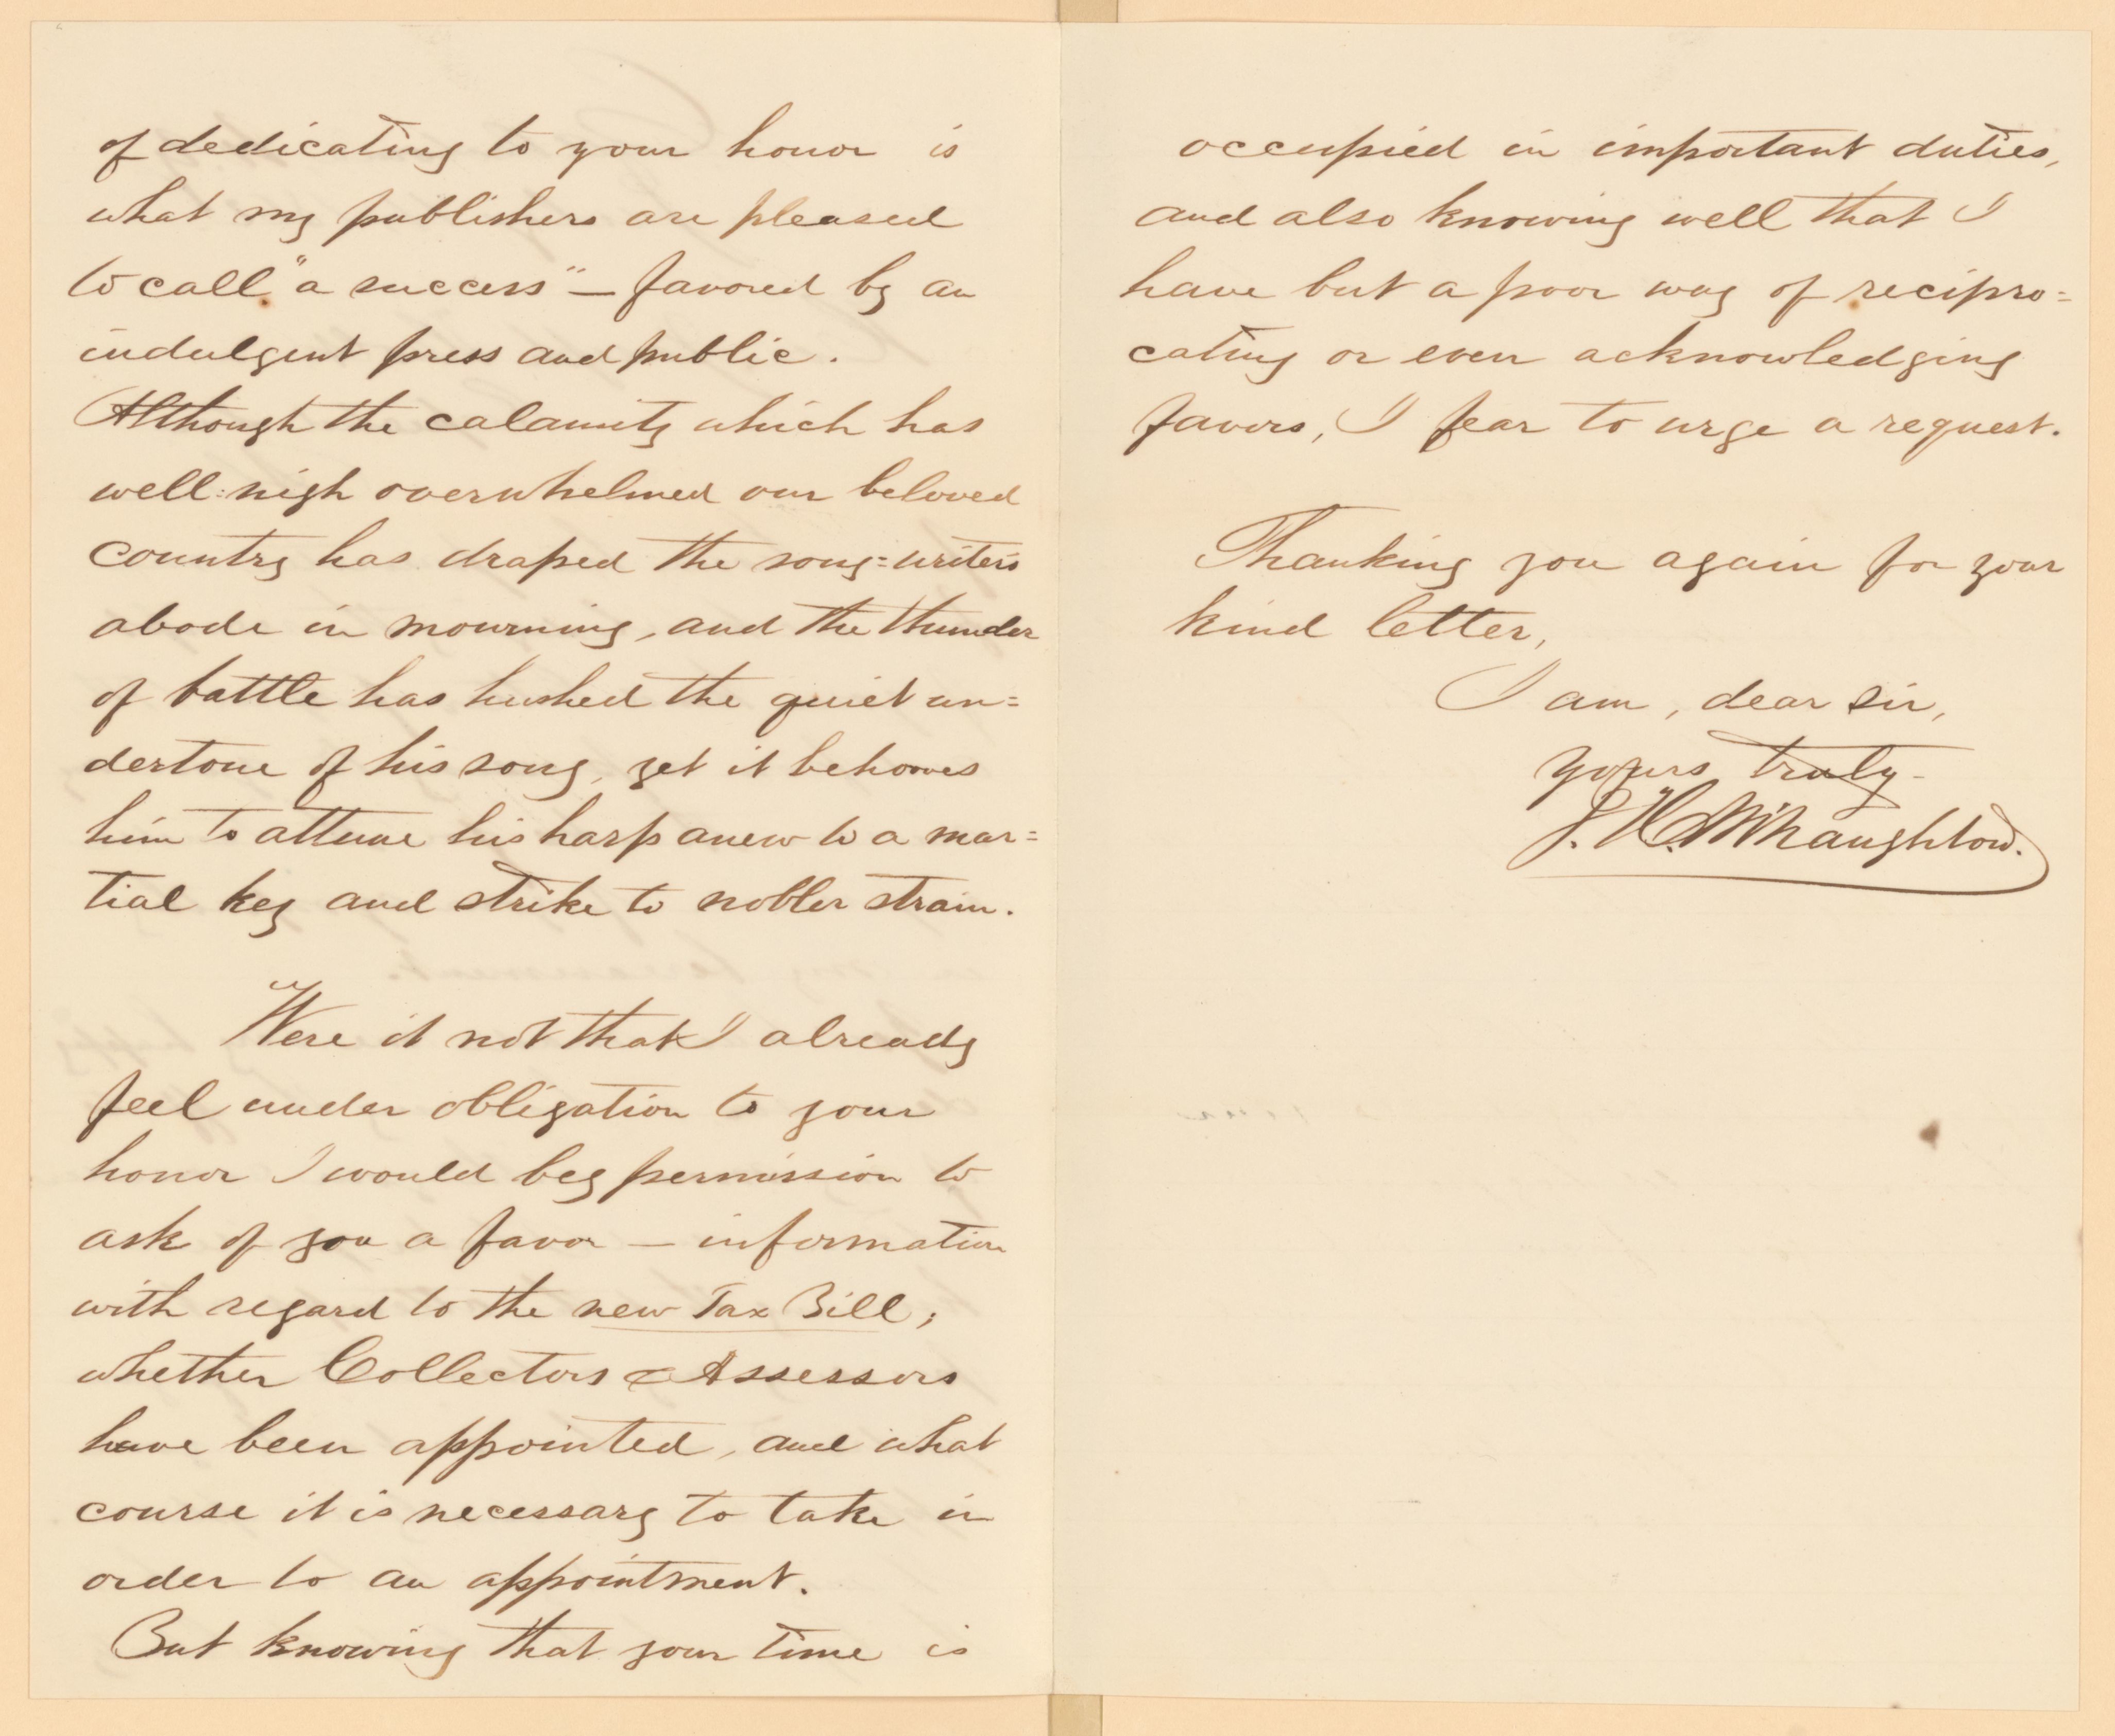 of dedicating to your honor is
what my publishers are pleased
to call "a success" — favored by an
indulgent press and public.
Although the calamity which has
well=nigh overwhelmed our beloved
country has draped the song=writer's
abode in mourning, and the thunder
of battle has hushed the quiet un=
dertone of his song, yet it behooves
him to attune his harp anew to a mar=
tial key and strike to nobler strain.
Were it not that I already
feel under obligation to your
honor I would beg permission to
ask of you a favor — information
with regard to the new Tax Bill;
whether Collectors & Assessors
have been appointed, and what
course it is necessary to take in
order to an appointment.
But knowing that your time is
occupied in important duties,
and also knowing well that I
have but a poor way of recipro=
cating or even acknowledging
favors, I fear to urge a request.
Thanking you again for your
kind letter,
I am, dear sir,
yours truly—
J. H. McNaughton.